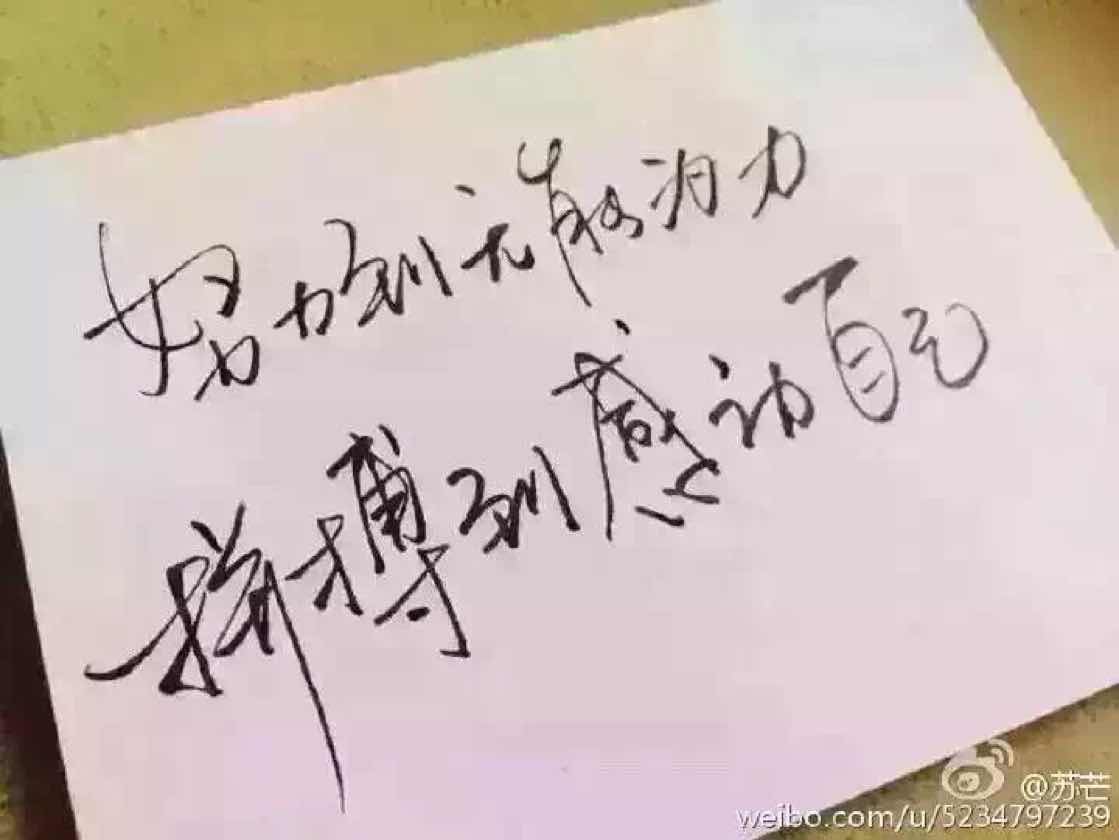 努力到无能为力
拼搏到感动自己
@苏芒
weibo.com/u/5234797239